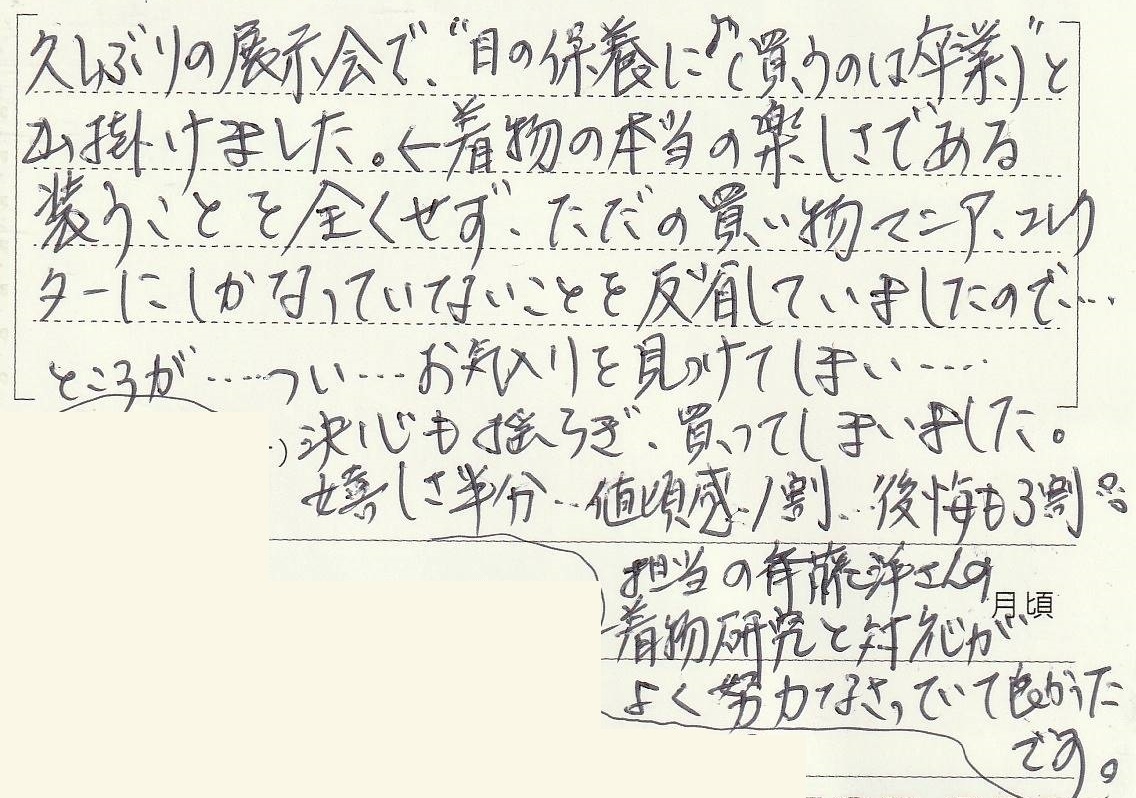 久しぶりの展示会で、“目の保養に♪(買うのは卒業)”と
出掛けました。←着物の本当の楽しさである
装うことを全くせず、ただの買い物マニア、コレク
ターにしかなっていないことを反省していましたので…
ところが……つい……お気入りを見つけてしまい……
決心も揺らぎ、買ってしまいました。
嬉しさ半分…値頃感1割…後悔も3割
担当の斉藤洋さんの
月頃
着物研究と対応が
よく努力なさっていて良かった
です。